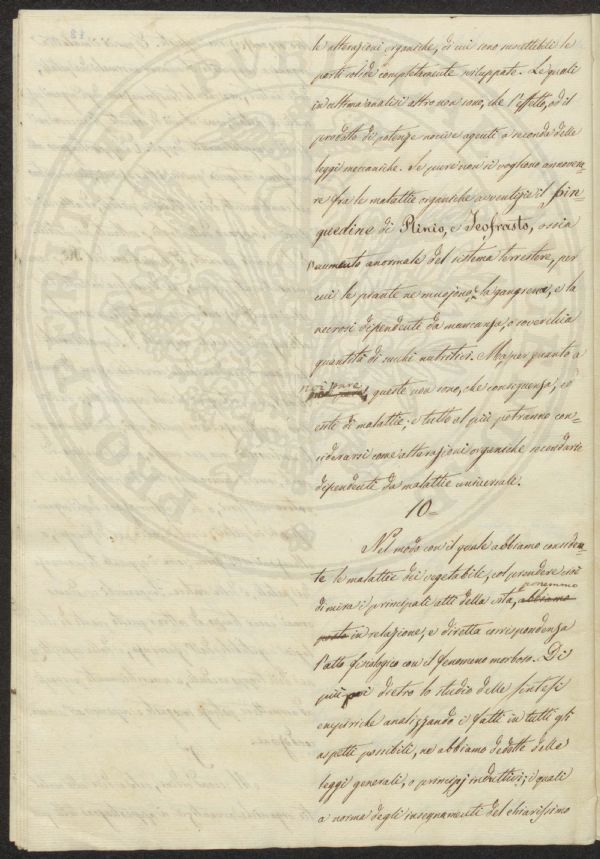 le alterazioni organiche, di cui sono suscettibili le
parti solide completamente sviluppate. Le quali
in ultima analisi altro non sono, che l'effetto, od il
prodotto di potenze nocive agenti a seconda delle
leggi meccaniche. Se pure non si vogliono annovera=
re fra le malattie organiche avventizie il pin=
guedine di Plinio, e Teofrasto, ossia
l'aumento anormale del sistema terrestere, per
cui le piante ne muojono, la gangrena, e la
necrosi dipendente da mancanza, o soverchia
quantità di succhi nutritivi. Ma, per quanto a
noi pare
queste non sono, che conseguenze, ed
esiti di malattie; e tutto al più potranno con=
siderarsi come alterazioni organiche secondarie
dipendenti da malattie universali.
10=
Nel modo con il quale abbiamo considera=
te le malattie dei vegetabili, col prendere cioè
ponemmo
di mira i principali atti della vita, abbiamo
posto in relazione, e diretta corrispondenza
l'atto fisiologico con il fenomeno morboso. Di
più poi dietro lo studio delle sintesi
empiriche analizzando i fatti in tutti gli
aspetti possibili, ne abbiamo dedotte delle
leggi generali, o principj induttivi; i quali
a norma degli insegnamenti del chiarissimo